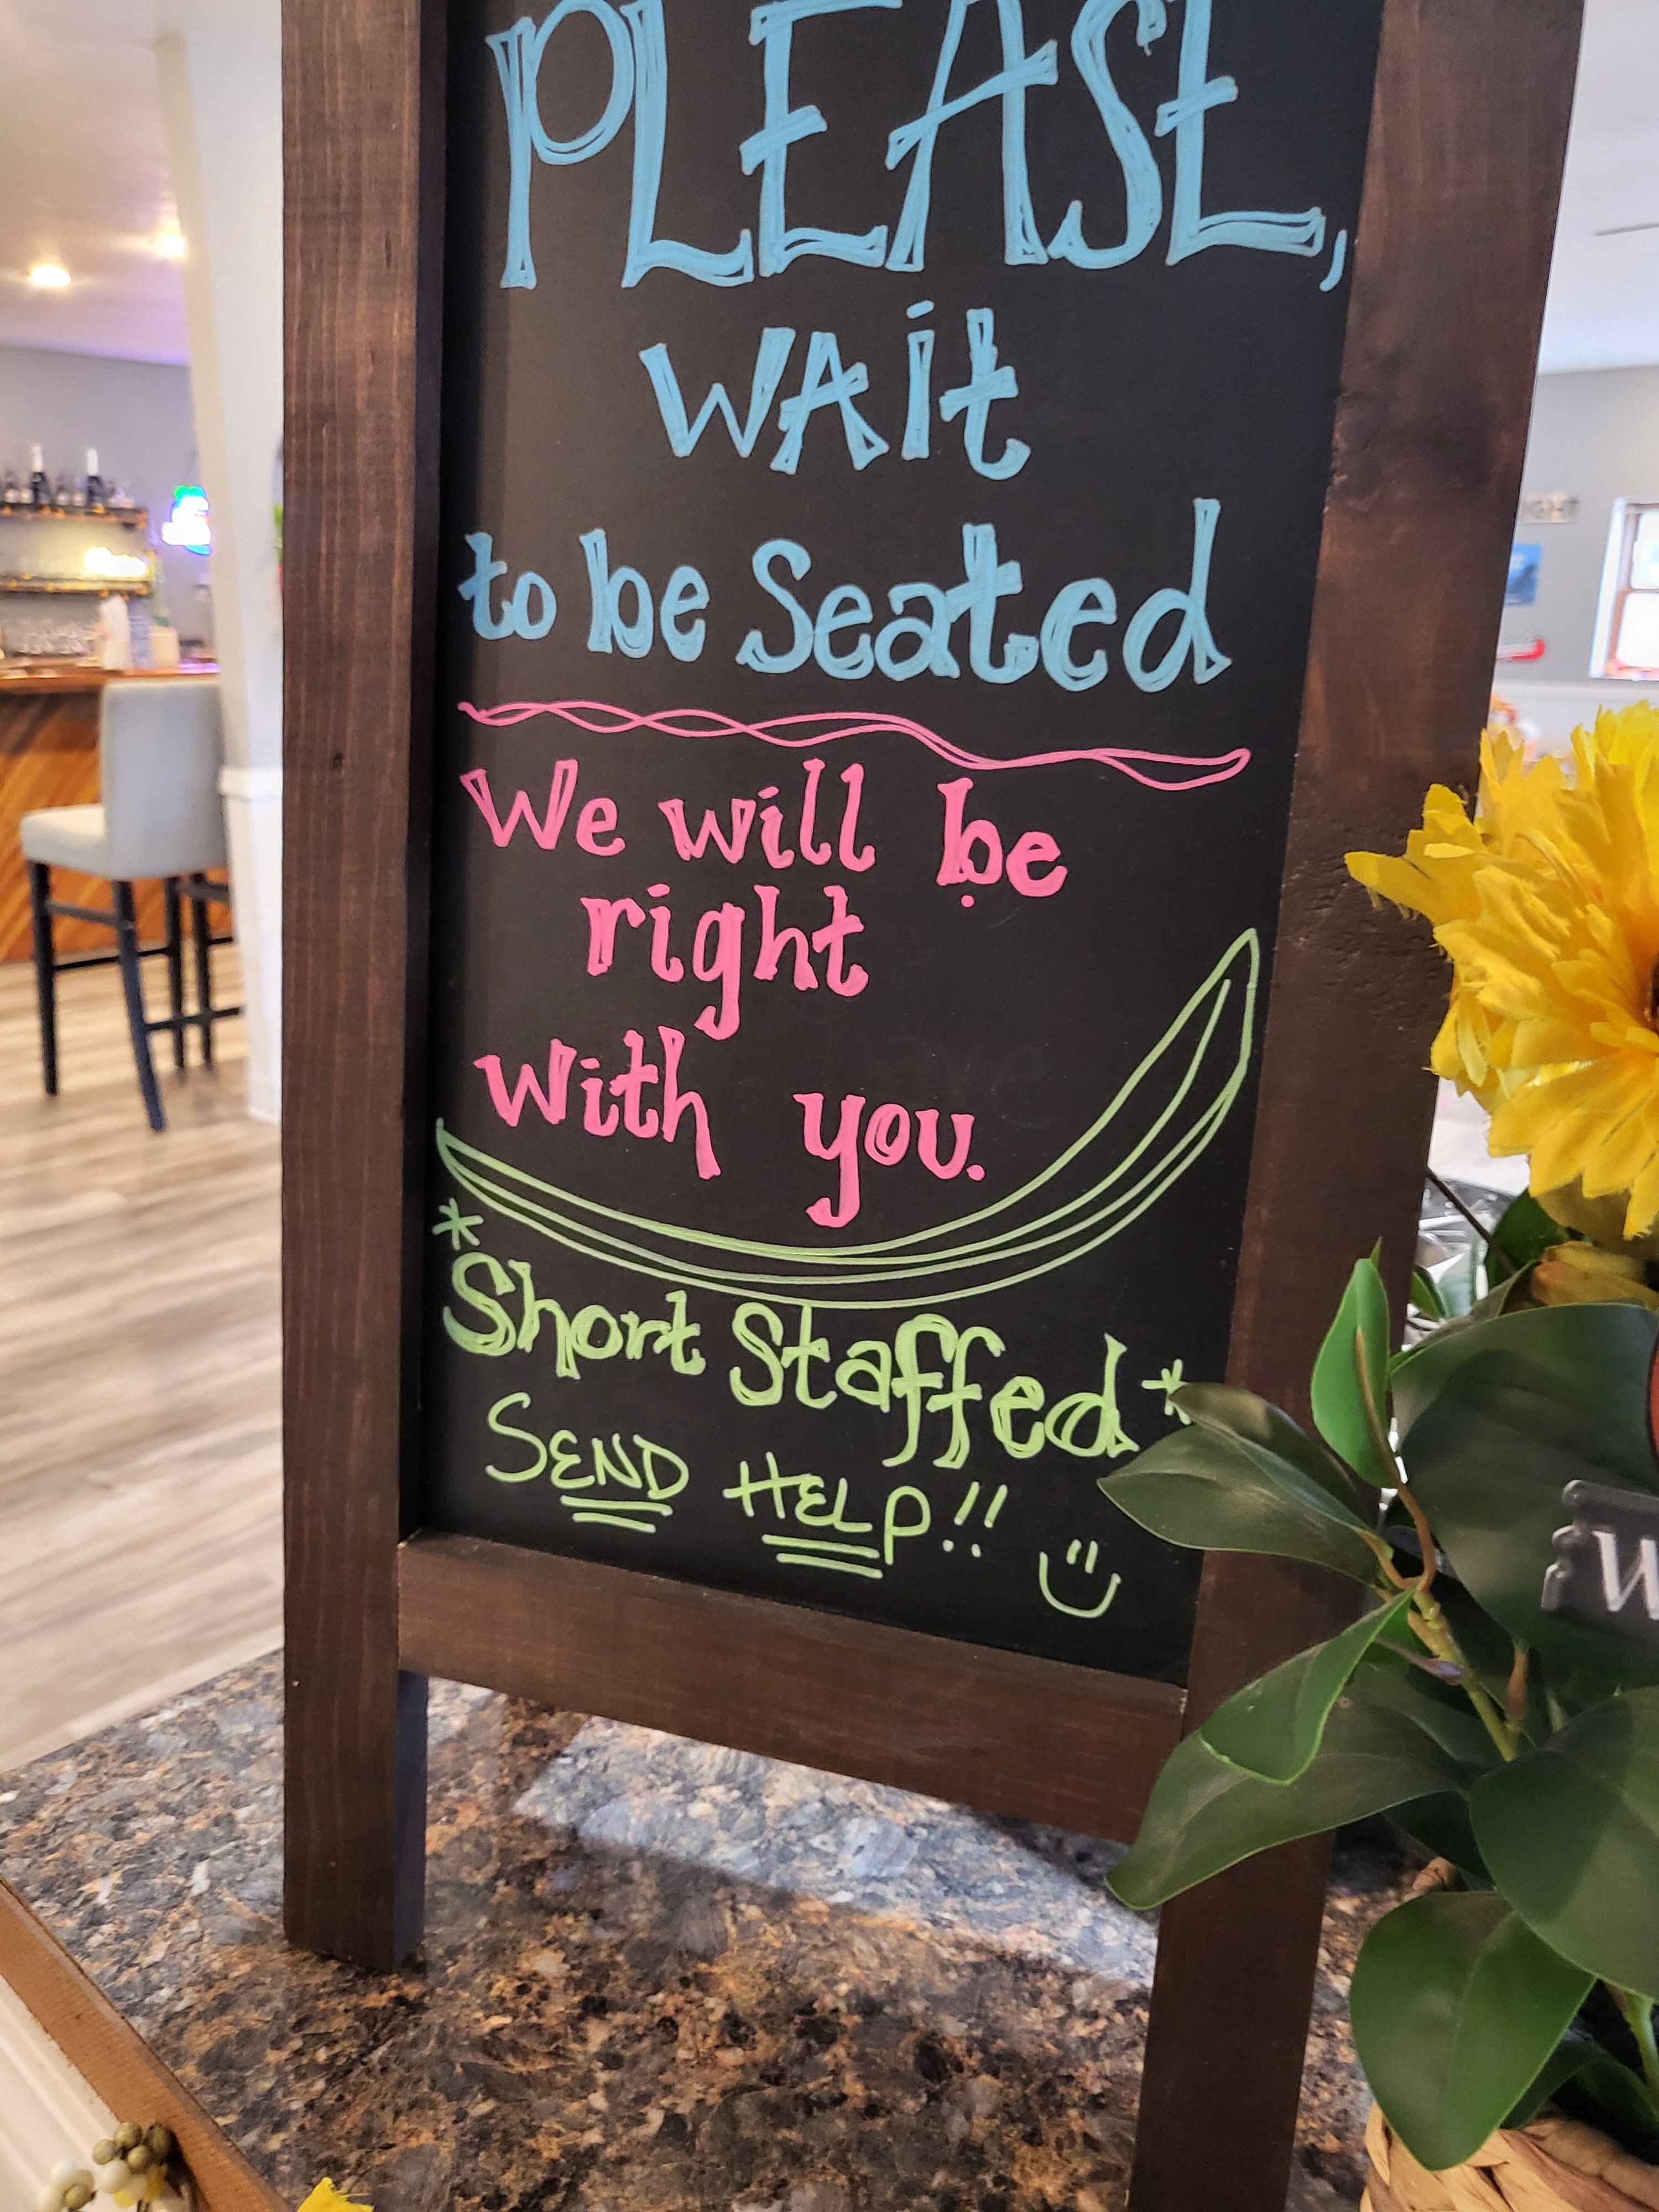 PLEASE,
WAit
to be Seated
We will be
right
with you.
*Short Staffed*
SEND HELP!!